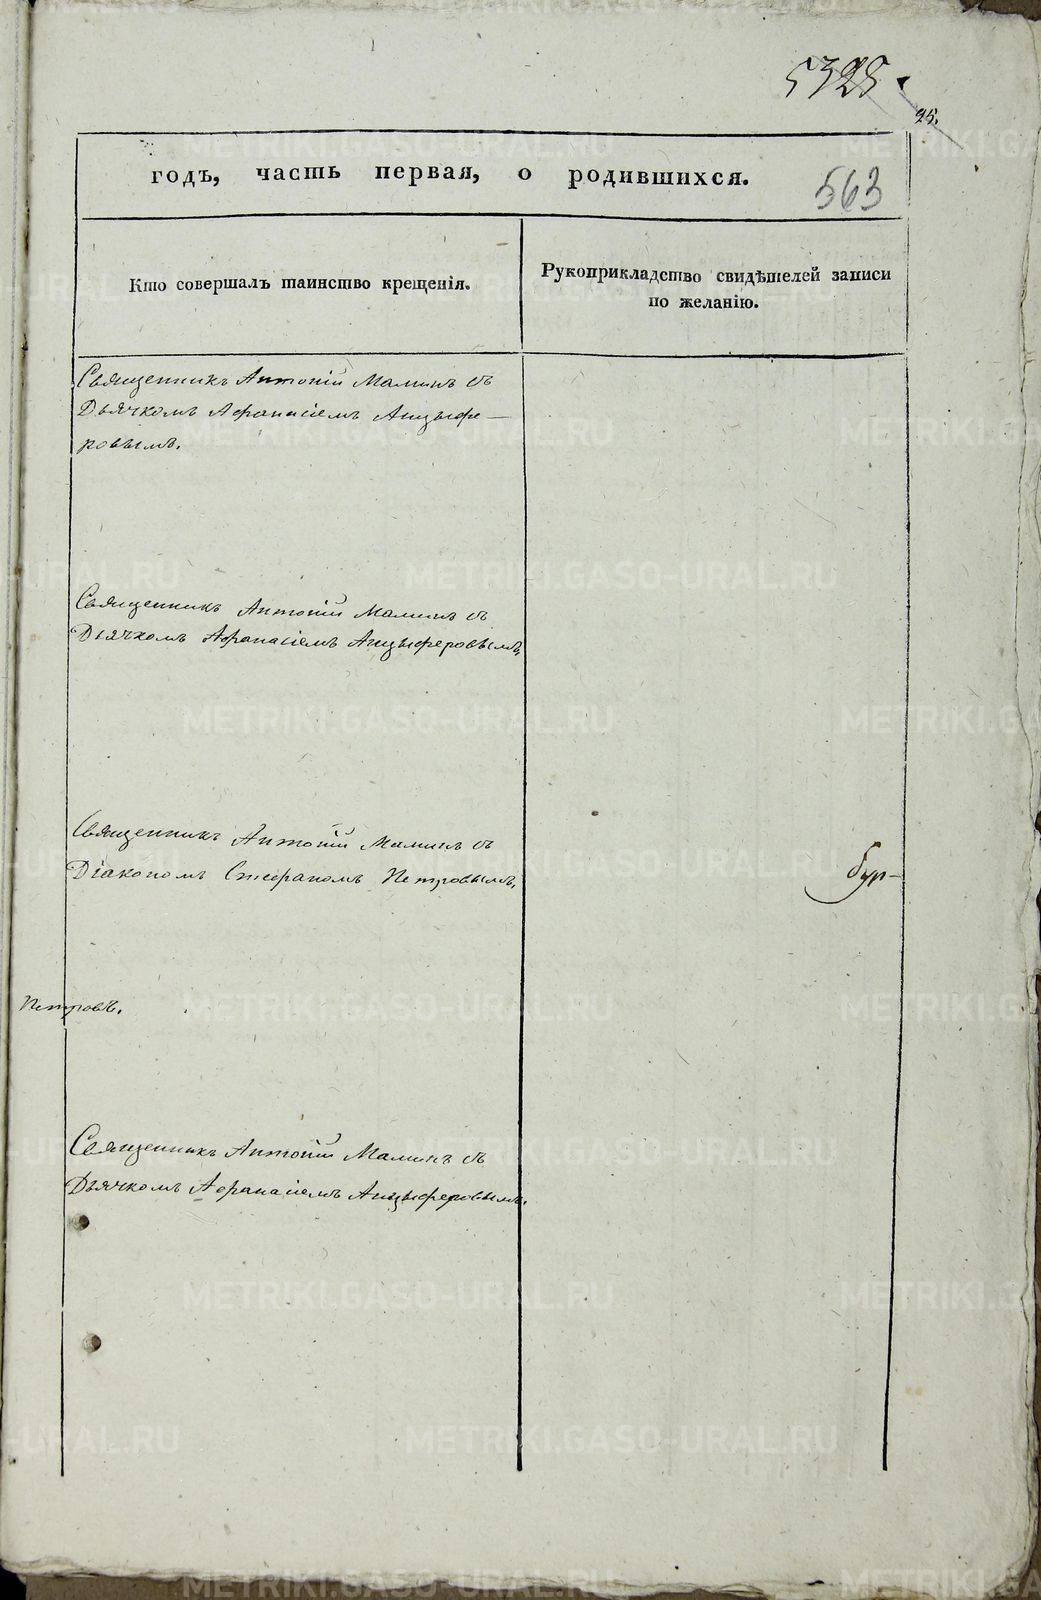 5325
25.
годъ, часть первая, о родившихся.
563
Кто совершалъ таинство крещенія.
Рукоприкладство свидѣтелей записи
по желанію.
Священникъ Антоній Маминъ съ
Дьячкомъ Афанасіемъ Анцыфе-
ровымъ.
Священникъ Антоній Маминъ съ
Дьячкомъ Афанасіемъ Анцыферовымъ,
Священникъ Антоній Маминъ съ
Діакономъ Стефаномъ Петровымъ,
бур-
Петровъ.
Священникъ Антоній Маминъ съ
Дьячкомъ Афанасіемъ Анцыферовымъ.
METRIKI.GASO-URAL.RU